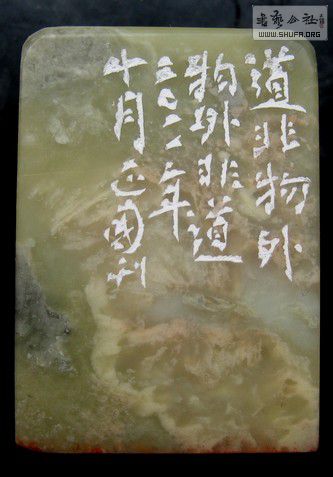 道非物外
物外非道
二〇一一年
十月正国刊
書藝公社
WWW.SHUFA.ORG